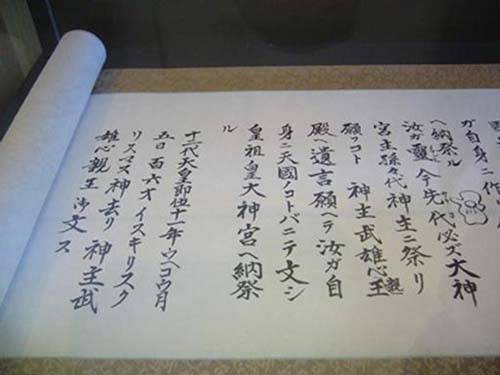 ガ自身ニ作
ヘ納祭ル
汝ガ靈今先代必ズ大神
宮主孫々代神主ニ祭リ
願フコト 神主武雄心親王
殿ヘ遺言願ヘテ汝ガ自
身ニ天國ノコトバニテ文シ
皇祖皇大神宮ヘ納祭
ル
十二代天皇即位十一年ケヘコ月
五日百六才イスキリスク
リスマス神去リ 神主武
雄心親王 文ス